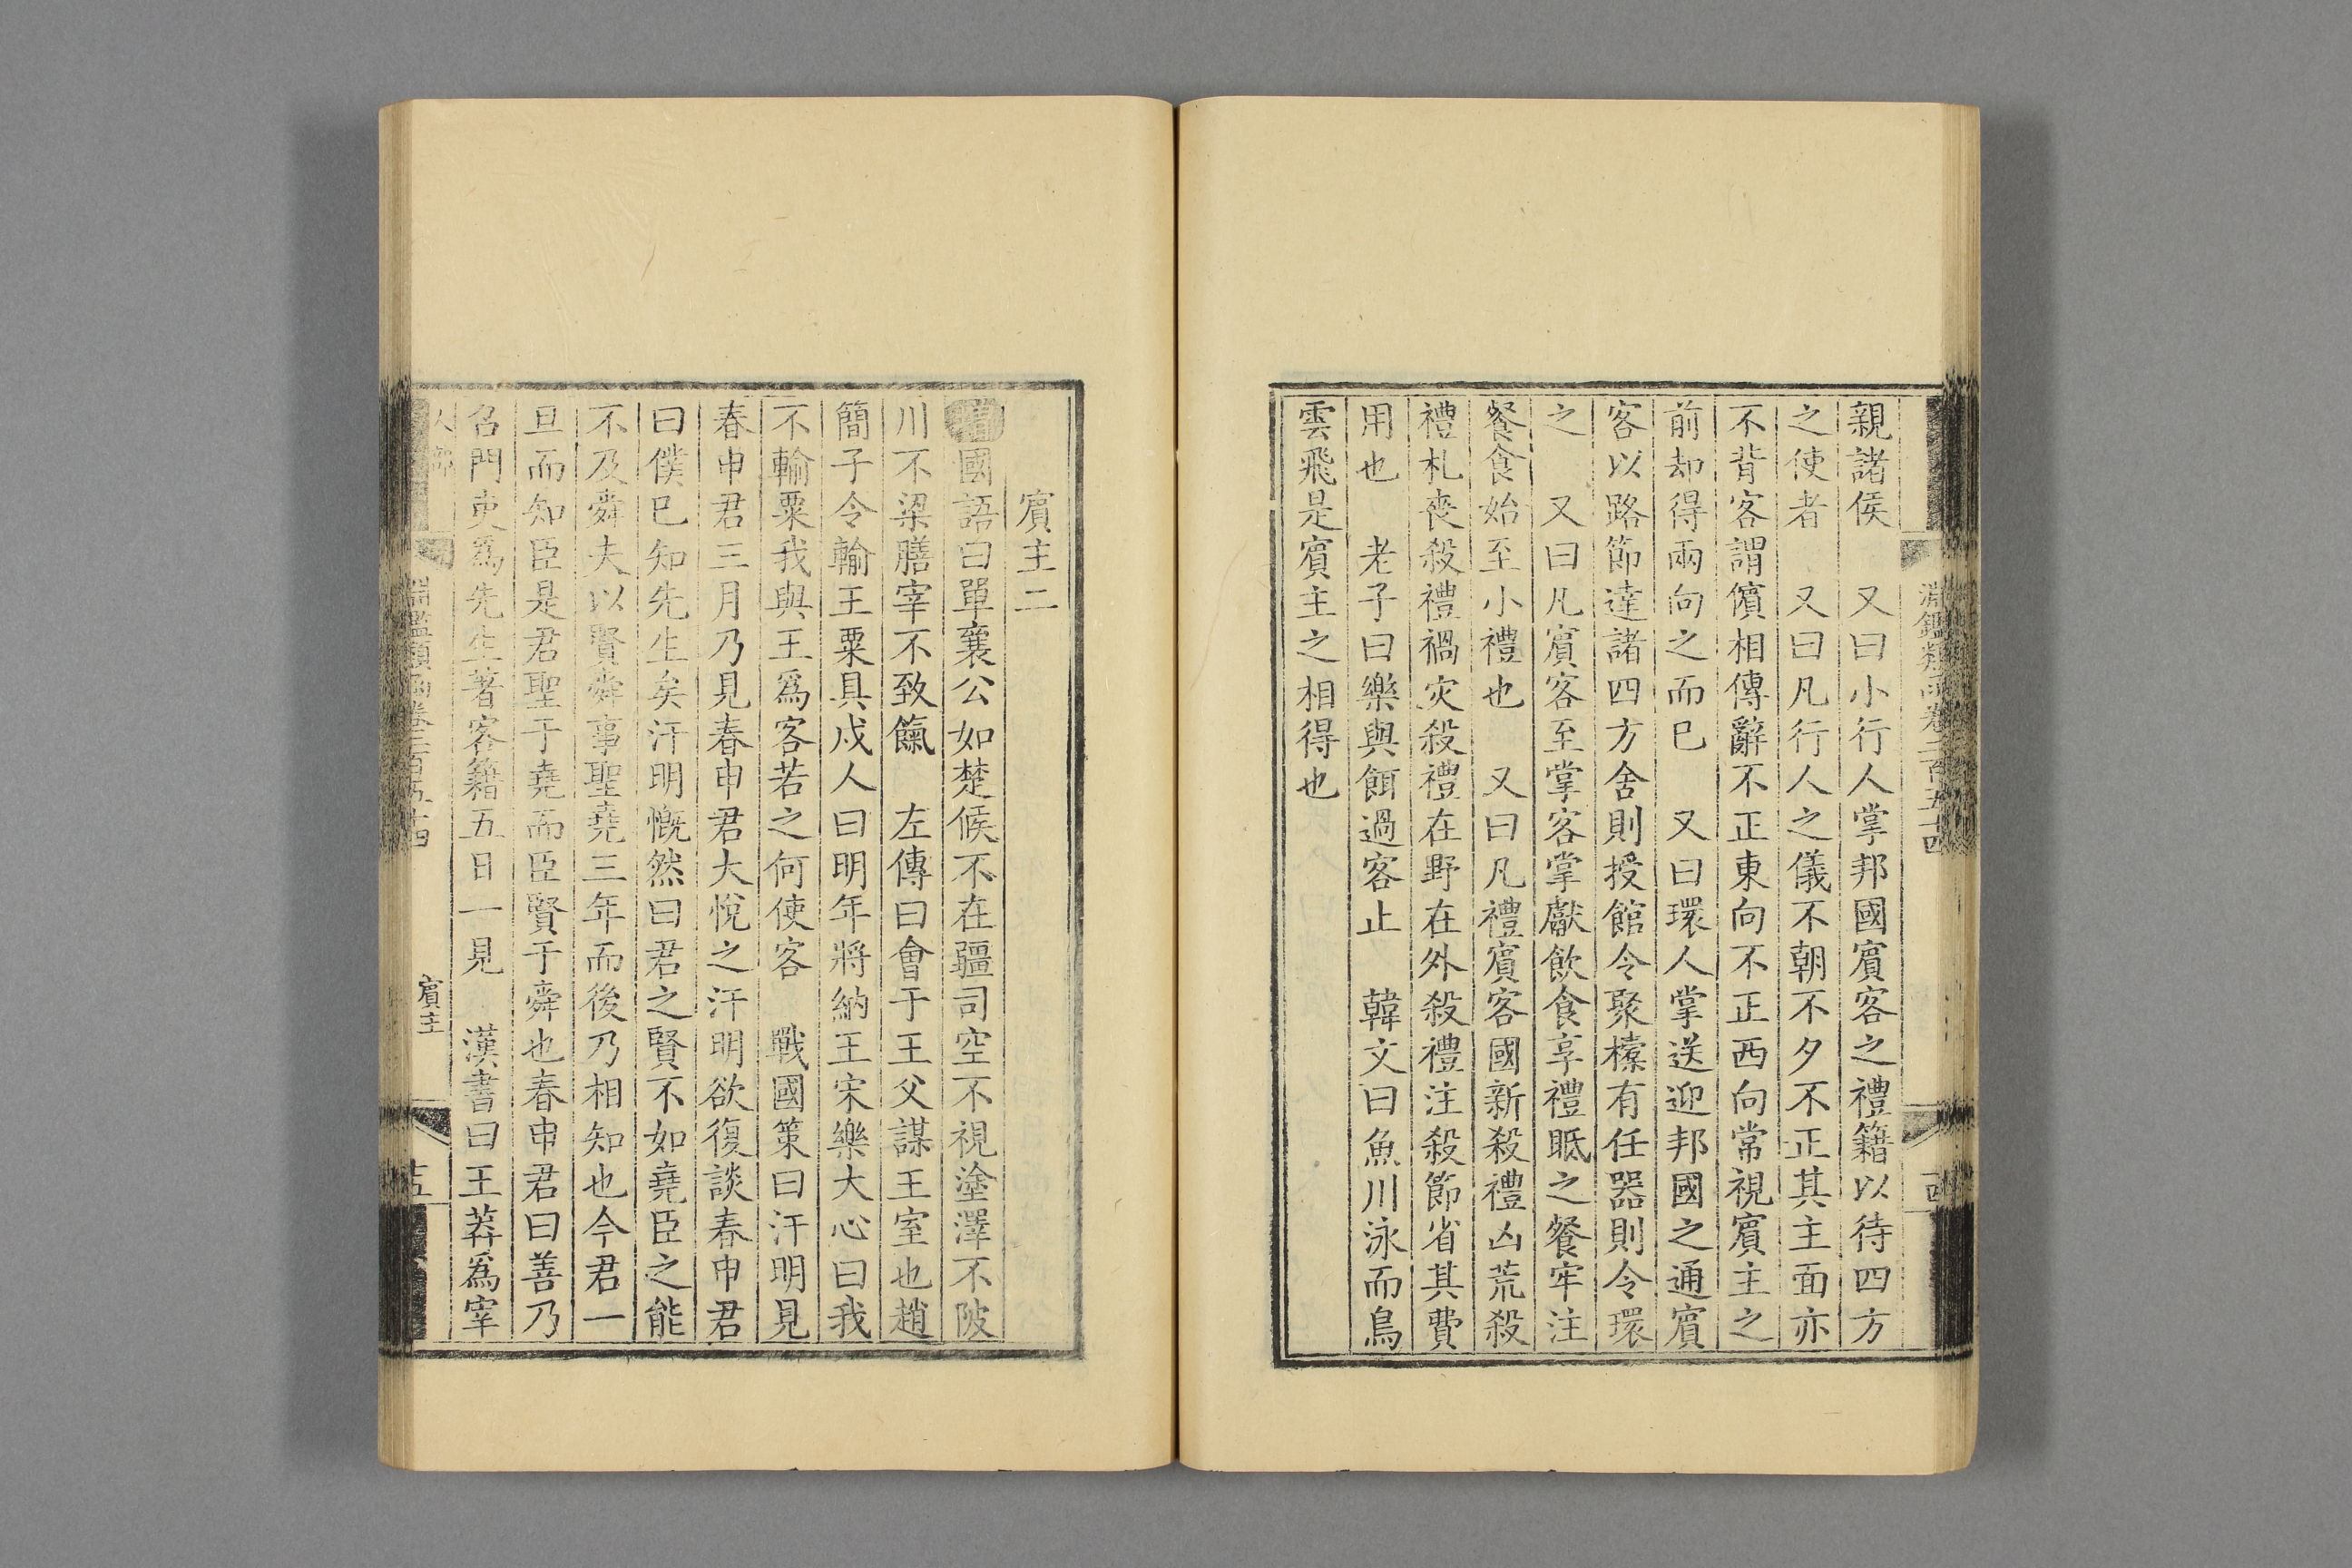 親諸侯　又曰小行人掌邦國賓客之禮籍以待四方
之使者　又曰凡行人之儀不朝不夕不正其主面亦
不背客謂儐相傳辭不正東向不正西向常視賓主之
前却得兩向之而巳　又曰環人掌送迎邦國之通賓
客以路節達諸四方舍則授館令聚㯓有任器則令環
之　又曰凡賓客至掌客掌獻飲食享禮眡之餐牢注
餐食始至小禮也　又曰凡禮賓客國新殺禮凶荒殺
禮札喪殺禮禍灾殺禮在野在外殺禮注殺節省其費
用也　老子曰樂與餌過客止　韓文曰魚川泳而鳥
雲飛是賓主之相得也
淵鑑類函卷二百五十四
賓主二
國語曰單襄公如楚候不在疆司空不視塗澤不陂
川不梁膳宰不致餼　左傳曰會于王父謀王室也趙
簡子令輸王粟具戍人曰明年將納王宋樂大心曰我
不輸粟我與王爲客若之何使客　戰國策曰汗明見
春申君三月乃見春申君大悅之汗明欲復談春申君
曰僕巳知先生矣汗明慨然曰君之賢不如堯臣之能
不及舜夫以賢舜事聖堯三年而後乃相知也今君一
旦而知臣是君聖于堯而臣賢于舜也春申君曰善乃
召門吏爲先生著客籍五日一見　漢書曰王莽爲宰
人部
淵鑑類函卷二百五十四
賓主
十五